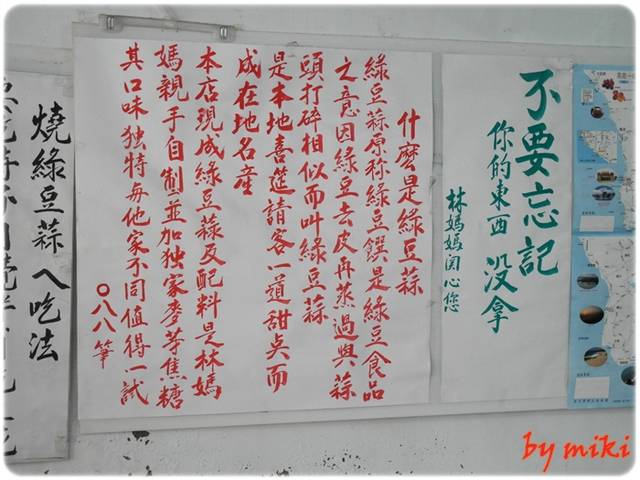 不要忘記
你的東西 没拿
林媽媽関心您
什麼是綠豆蒜
綠豆蒜原称綠豆饌是綠豆食品
之意因綠豆去皮再蒸過與蒜
頭打碎相似而叫綠豆蒜
是本地喜筵請客一道甜点而
成在地名産
本店現成綠豆蒜及配料是林媽
媽親手自制並加独家麥芽焦糖
其口味独特每他家不同值得一試
〇八八筆
燒綠豆蒜ㄟ吃法
by miki